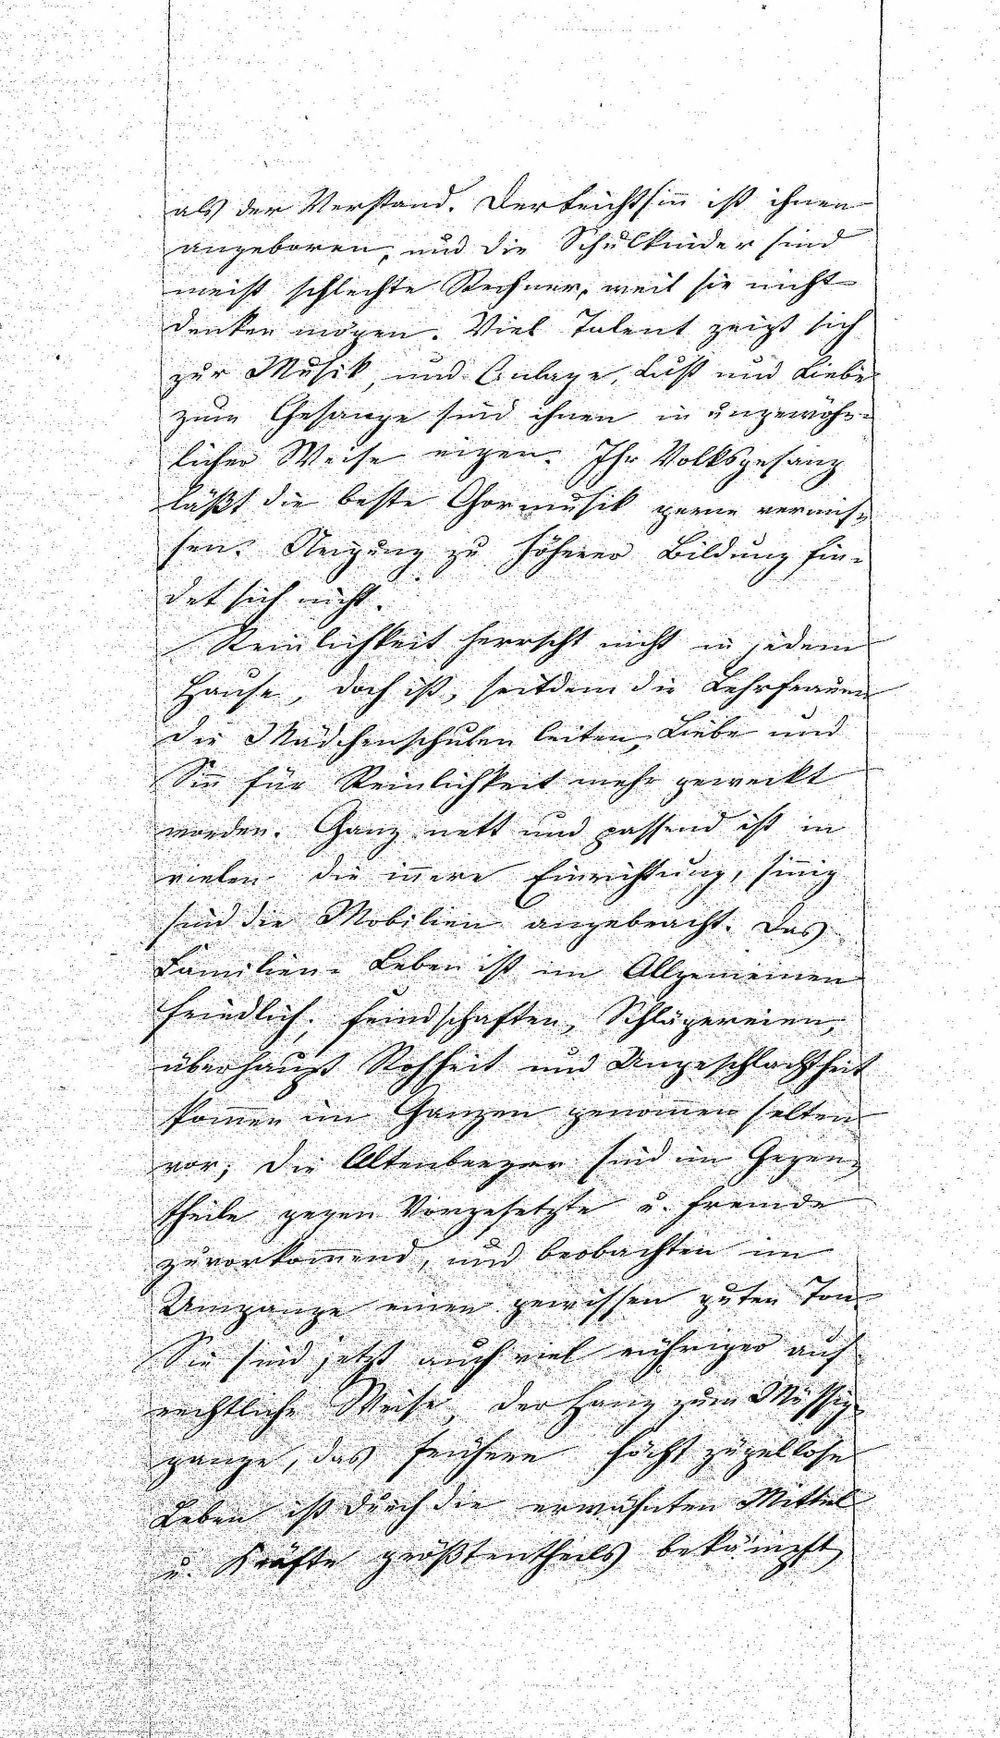 als der Verstand. Der Leichtsinn ist ihnen
angeboren, und die Schulkinder sind
meist schlechte Rechner, weil sie nicht
denken mögen. Viel Talent zeigt sich
zur Musik, und Anlage, Lust und Liebe
zum Gesange sind ihnen in ungewöhn-
licher Weise eigen. Ihr Volksgesang
läßt die beste Chormusik gerne vermis-
sen. Neigung zu höherer Bildung fin-
det sich nicht.
Reinlichkeit herrscht nicht in jedem
Hause, doch ist, seitdem die Lehrfrauen
die Mädchenschulen leiten, Liebe und
Sinn für Reinlichkeit mehr geweckt
worden. Ganz nett und passend ist in
vielen die innere Einrichtung, sinnig
sind die Mobilien angebracht. Das
Familien-Leben ist im Allgemeinen
friedlich; Feindschaften, Schlägereien,
überhaupt Rohheit und Ungeschlachtheit
kommen im Ganzen genommen selten
vor; die Altenbeeger sind im Gegen-
theile gegen Vorgesetzte u. Fremde
zuvorkommend, und beobachten im
Umgange einen gewissen guten Ton.
Sie sind jetzt auch viel rühriger auf
rechtliche Weise, der Hang zum Müssig-
gange, das frühere höchst zügellose
Leben ist durch die erwähnten Mittel
u. Kräfte größtentheils bekämpft